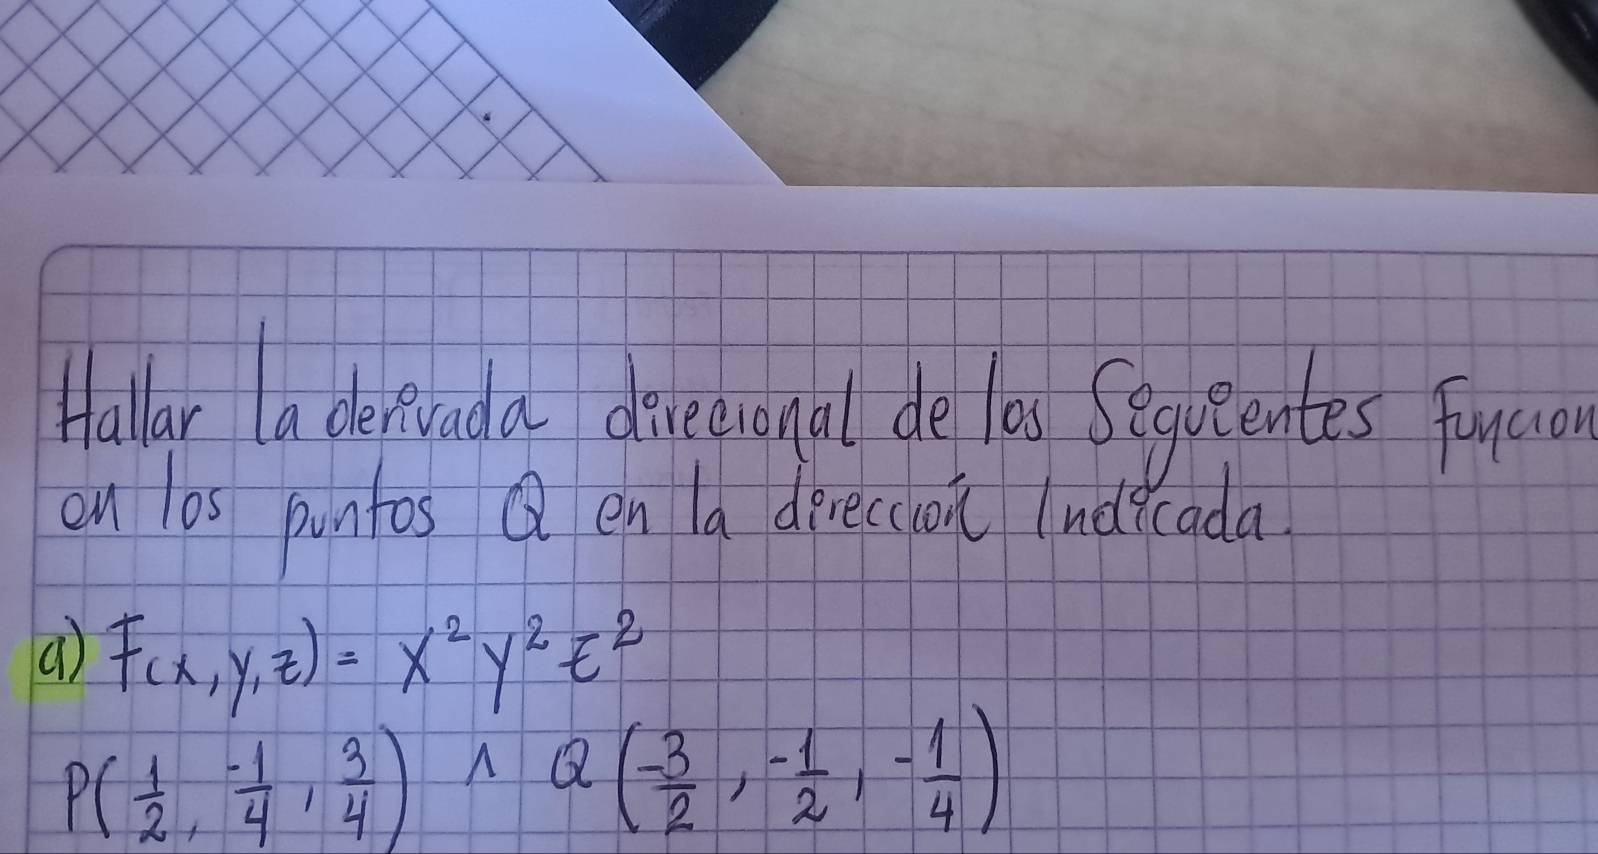 Hallar la derivada direcional de los Seguientes funcion
en los puntos Q en la direccion Indicada.
a) F(x, y, z) = x² y² z²
P(1/2, -1/4, 3/4) ∧ Q(-3/2, -1/2, -1/4)